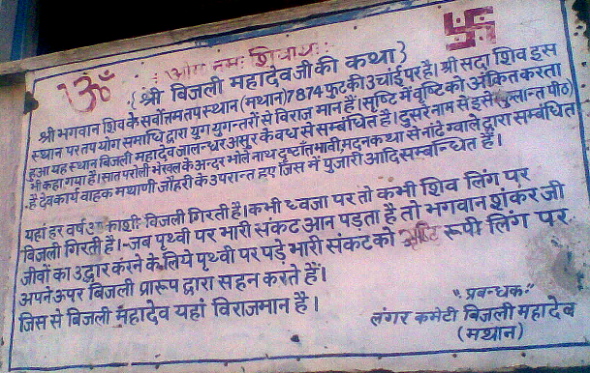 ॐ
ओम नमः शिवायः
{श्री बिजली महादेवजी की कथा}
श्री भगवान शिव के सर्वोत्तम तप स्थान (मथान) 7874 फुट की उंचाई पर है। श्री सदा शिव इस
स्थान पर तप योग समाधि द्वारा युग युगन्तरों से विराज मान हैं। सृष्टि में वृष्टि को अंकित करता
हुआ यह स्थान बिजली महादेव जालन्धर असुर के वध से सम्बंधित है। दुसरे नाम से इसे (कुलान्त पीठ)
भी कहा गया है। सात परोली भेखल के अन्दर भोले नाथ दुष्टांत भावी, मदन कथा से नांढे ग्वाले द्वारा सम्बंधित
है देव कार्य वाहक मथाणी जोहरी के उपरान्त हुए जिस में पुजारी आदि सम्बन्धित हैं।
यहां हर वर्ष आकाशीय बिजली गिरती है। कभी ध्वजा पर तो कभी शिव लिंग पर
बिजली गिरती है। -जब पृथ्वी पर भारी संकट आन पड़ता है तो भगवान शंकर जी
जीवों का उद्धार करने के लिये पृथ्वी पर पड़े भारी संकट को रूपी लिंग पर
अपने ऊपर बिजली प्रारूप द्वारा सहन करते हैं।
जिस से बिजली महादेव यहां विराजमान है।
"प्रबन्धक"
लंगर कमेटी बिजली महादेव
(मथान)